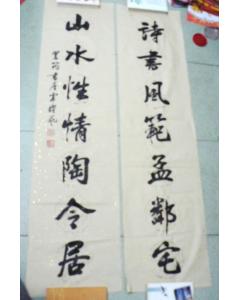 詩書風範孟鄰宅
山水性情陶令居